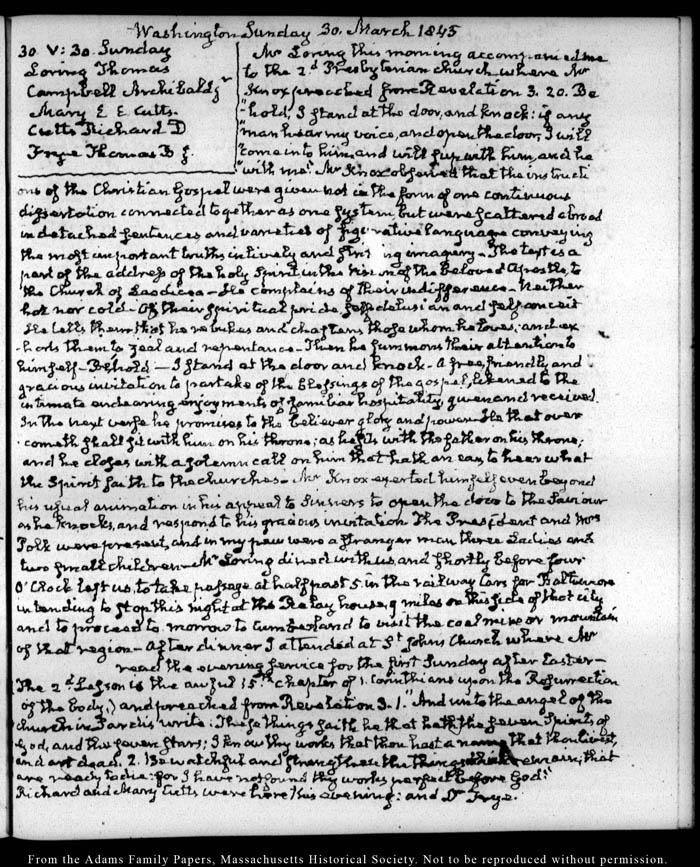 Washington Sunday 30. March 1845
30. V: 30. Sunday
Loring Thomas
Campbell Archibald Jr
Mary E E Cutts.
Cutts Richard D
Frye Thomas B J.
Mr Loring this morning accompanied me
to the 2d Presbyterian church where Mr
Knox preached from Revelation 3. 20. Be
"hold, I stand at the door, and knock: if any
"man hear my voice, and open the door, I will
"come in to him, and will sup with him, and he
"with me." Mr Knox observed that the instructi
ons of the Christian Gospel were given not in the form of one continuous
dissertation connected together as one system, but were scattered abroad
in detached sentences and varieties of figurative language conveying
the most important truths in lively and striking imagery— The text is a
part of the address of the holy Spirit in the vision of the beloved Apostle, to
the Church of Laodicea— He complains of their indifference— Neither
hot nor cold— Of their spiritual pride, self delusion and self conceit
He tells them that he rebukes and chastens those whom he loves; and ex
-horts them to zeal and repentance— Then he summons their attention to
himself— Behold— I stand at the door and knock— A free, friendly, and
gracious invitation to partake of the blessings of the gospel, likened to the
intimate endearing enjoyments of familiar hospitality, given and received.
In the next verse he promises to the believer glory and power— He that over
cometh shall sit with him on his throne; as he sits with the father on his throne;
and he closes with a solemn call on him that hath an ear, to hear what
the Spirit saith to the churches— Mr Knox exerted himself even beyond
his usual animation in his appeal to Sinners to open the door to the Saviour
as he knocks, and respond to his gracious invitation The President and Mrs
Polk were present, and in my pew were a stranger man three Ladies and
two small children— Mr Loring dined with us, and shortly before four
O'Clock left us, to take passage at half past 5. in the railway Cars for Baltimore
intending to stop this night at the Relay house, 9 miles on this side of that city
and to proceed to morrow to Cumberland to visit the coal mine or mountain
of that region— After dinner I attended at St Johns Church where Mr
read the evening service for the first Sunday after Easter—
(The 2d Lesson is the awful 15th chapter of 1. Corinthians upon the Resurrection
of the body,) and preached from Revelation 3. 1. "And unto the angel of the
church in Sardis write: These things saith he that hath the seven Spirits of
God, and the seven stars; I know thy works that thou hast a name that thou livest,
and art dead. 2. Be watchful and strengthen the things which remain, that
are ready to die: for I have not found thy works perfect before God."
Richard and Mary Cutts were here this evening: and Dr Frye.
From the Adams Family Papers, Massachusetts Historical Society. Not to be reproduced without permission.